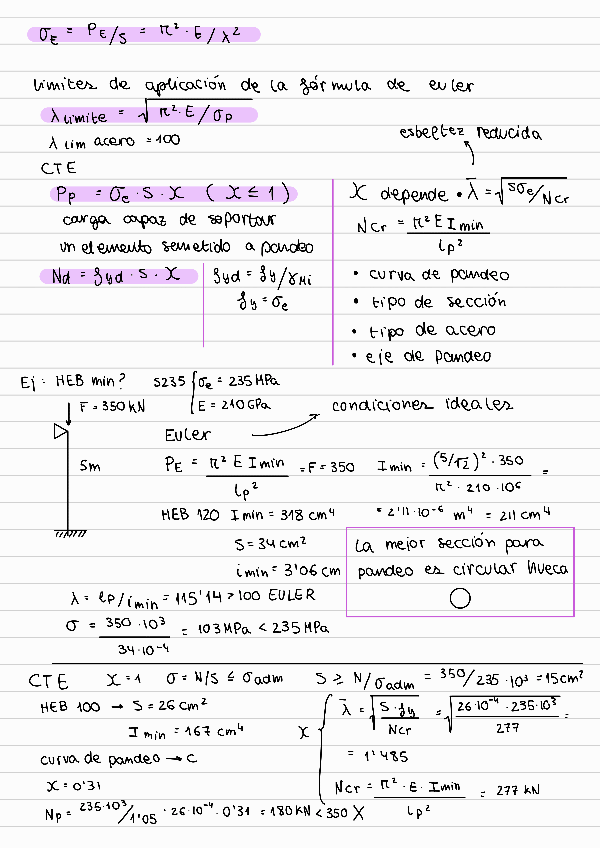 σE = PE/S = π²·E/λ²
límites de aplicación de la fórmula de euler
λ límite = √π²·E/σp
λ lim acero = 100
esbeltez reducida
CTE
Pp = σe · S · X (X ≤ 1)
carga capaz de soportar
un elemento sometido a pandeo
Nd = fyd · S · X
fyd = fy/γMi
fy = σe
X depende • λ̄ = √Sσe/Ncr
Ncr = π² E I min / lp²
• curva de pandeo
• tipo de sección
• tipo de acero
• eje de pandeo
Ej: HEB min? S235 { σe = 235 MPa
E = 210 GPa
F = 350 kN
5m
Euler → condiciones ideales
PE = π² E I min / lp² = F = 350 I min = (5/√2)² · 350 / π² · 210 · 10⁶ =
= 2'11 · 10⁻⁶ m⁴ = 211 cm⁴
HEB 120 I min = 318 cm⁴
S = 34 cm²
i min = 3'06 cm
la mejor sección para
pandeo es circular hueca
λ = lp/i min = 115'14 > 100 EULER
σ = 350 · 10³ / 34·10⁻⁴ = 103 MPa < 235 MPa
CTE X = 1 σ = N/S ≤ σadm S ≥ N/σadm = 350/235 · 10³ = 15 cm²
HEB 100 → S = 26 cm²
I min = 167 cm⁴
curva de pandeo → C
X = 0'31
Np = 235·10³/1'05 · 26·10⁻⁴ · 0'31 = 180 kN < 350 X
X { λ̄ = √S·fy/Ncr = √26·10⁻⁴ · 235·10³/277 =
= 1'485
Ncr = π² · E · I min / lp² = 277 kN